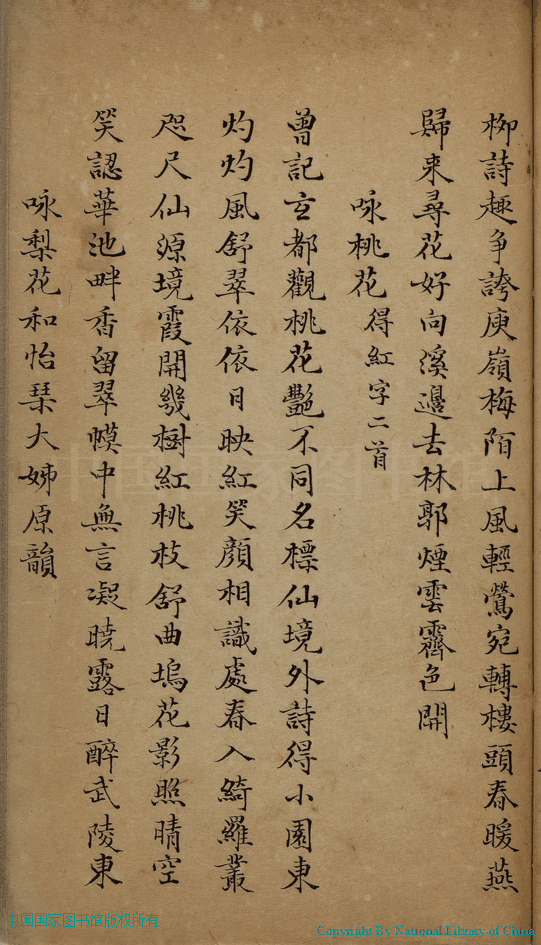 柳詩趣争誇庾嶺梅陌上風輕鶯宛轉樓頭春暖燕
歸来尋花好向溪邉去林郭煙雲霽色開
咏桃花得紅字二首
曾記玄都觀桃花艷不同名標仙境外詩得小園東
灼灼風舒翠依依日映紅笑顔相識處春入綺羅叢
咫尺仙源境霞開幾樹紅桃枝舒曲塢花影照晴空
笑認華池畔香留翠幙中無言凝曉露日醉武陵東
咏梨花和怡琹大姊原韻
中国国家图书馆
中国国家图书馆版权所有
Copyright By National Library of China